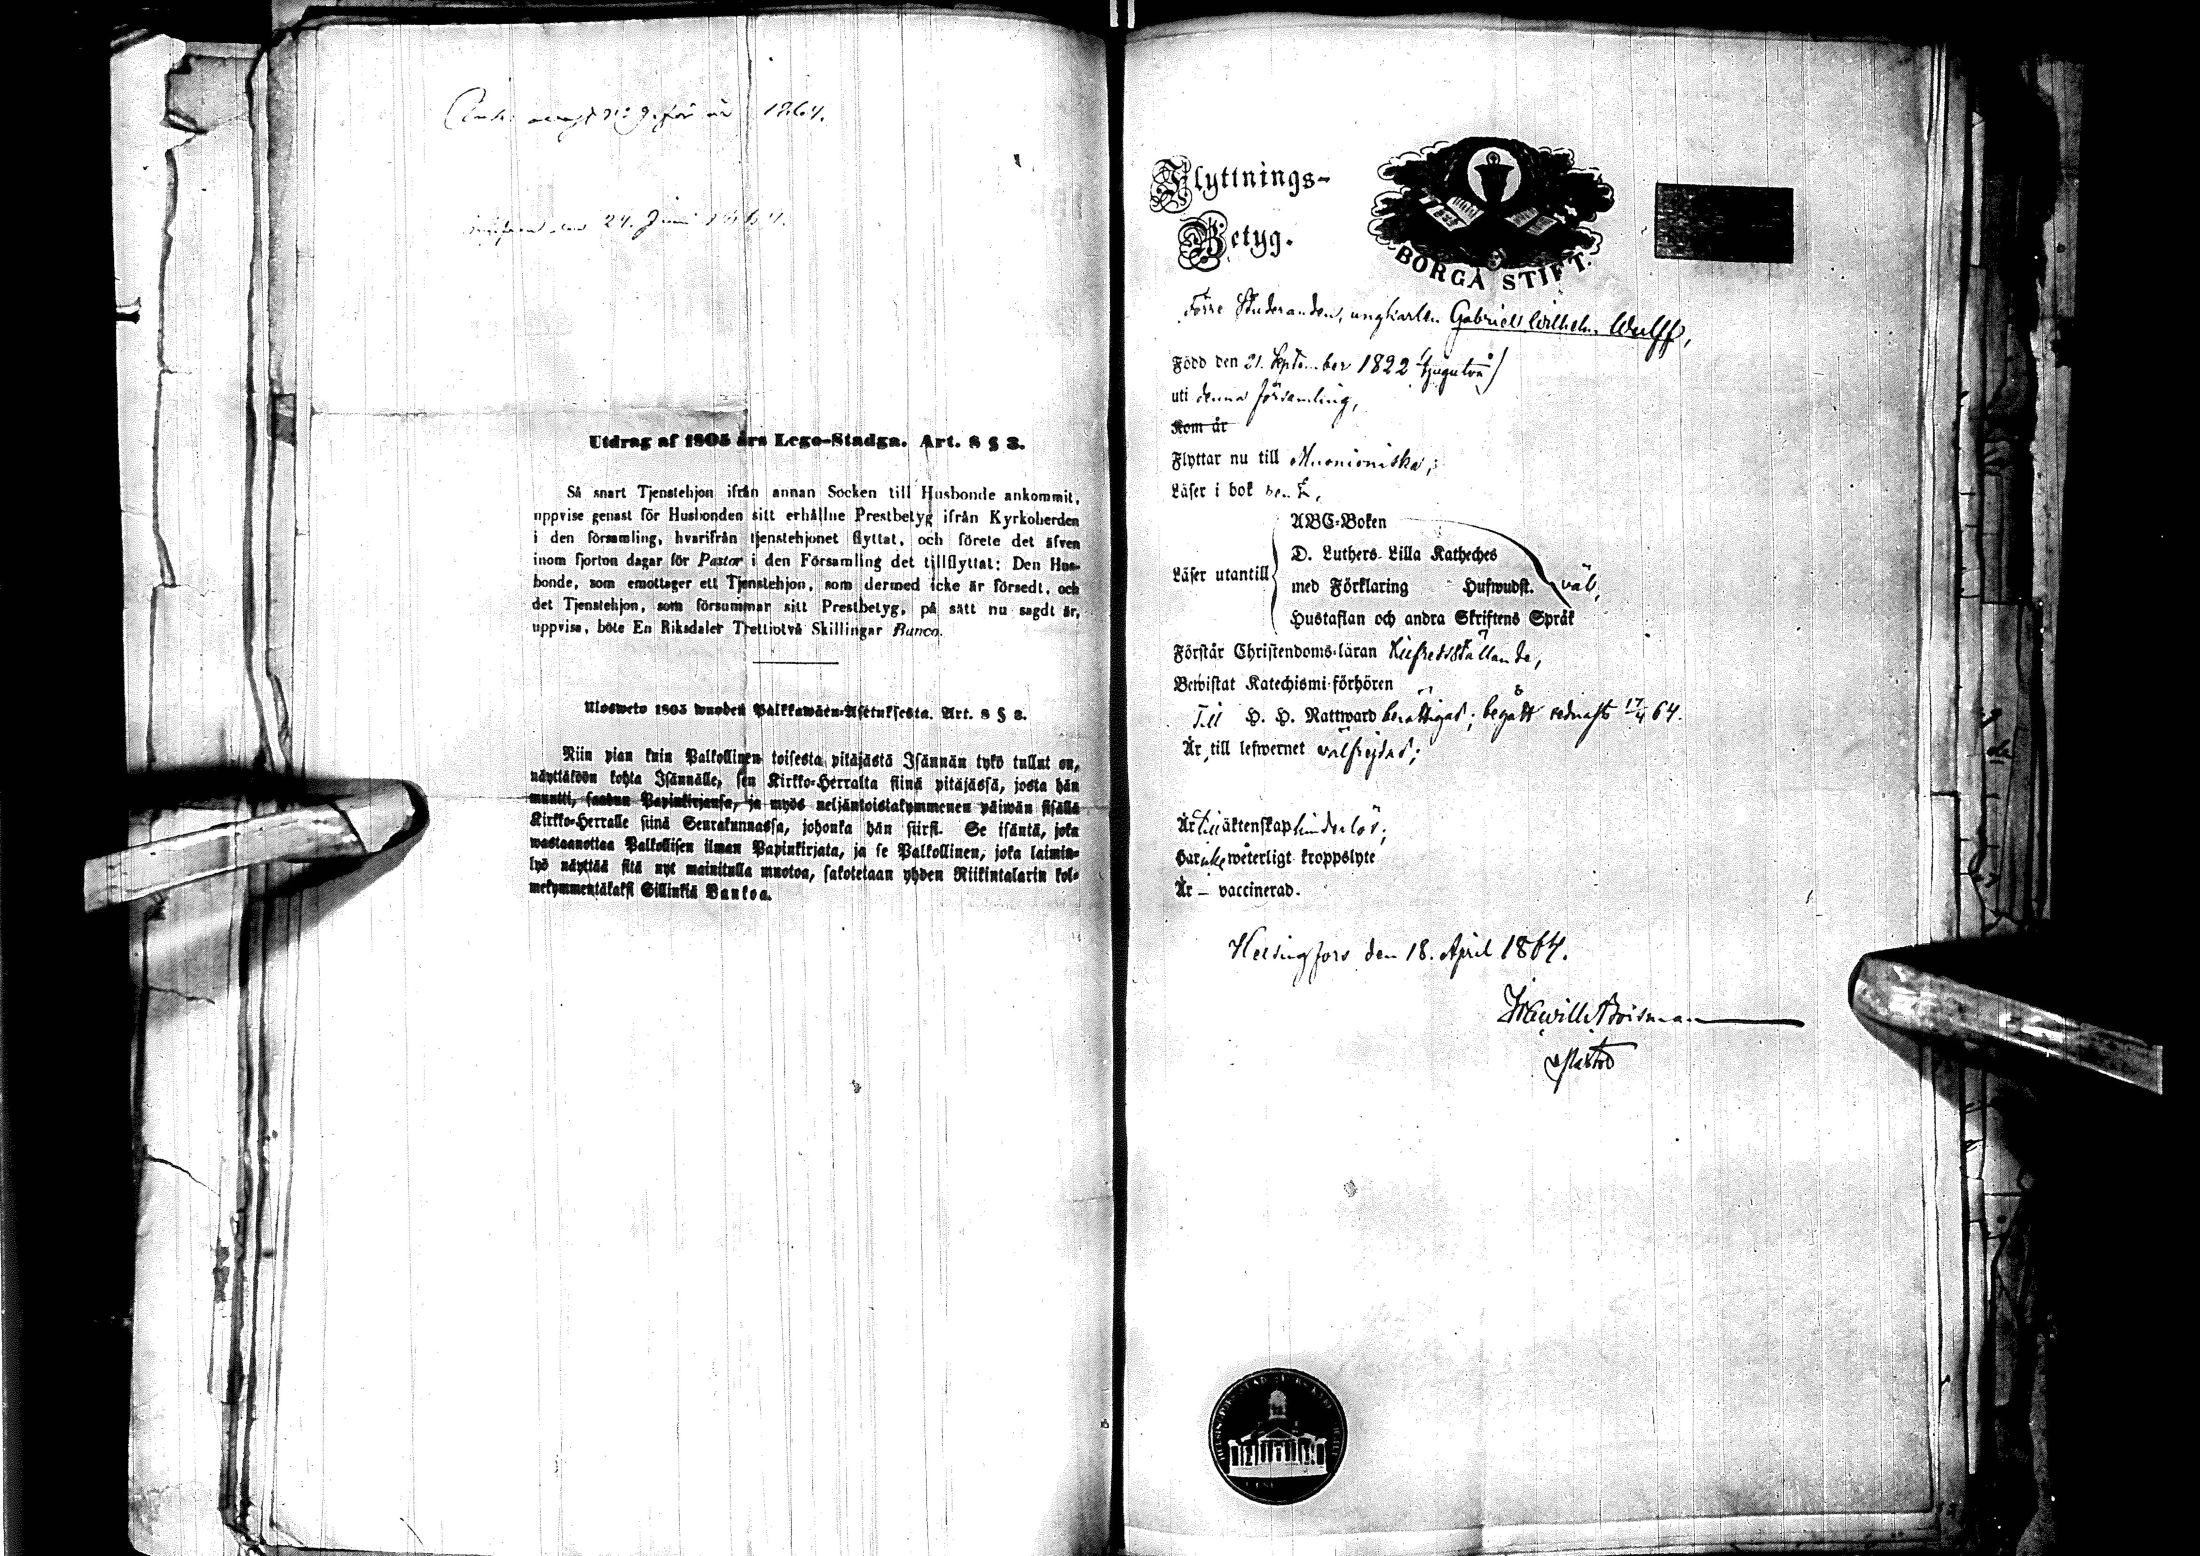 1864.
den 24. Juni 1864.
Utdrag af 1805 års Lego-Stadga. Art. 8 § 3.
Så snart Tjenstehjon ifrån annan Socken till Husbonde ankommit,
uppvise genast för Husbonden sitt erhållne Prestbetyg ifrån Kyrkoherden
i den församling, hvarifrån tjenstehjonet flyttat, och förete det äfven
inom fjorton dagar för Pastor i den Församling det tillflyttat: Den Hus-
bonde, som emottager ett Tjenstehjon, som dermed icke är försedt, och
det Tjenstehjon, som försummar sitt Prestbetyg, på sätt nu sagdt är,
uppvisa, böte En Riksdaler Trettiotvå Skillingar Banco.
Ulosweto 1805 wuoden Palkkawäen-Asetuksesta. Art. 8 § 3.
Niin pian kuin Palkollinen toisesta pitäjästä Isännän tykö tullut on,
näyttäköön kohta Isännälle, sen Kirkko-Herralta siinä pitäjässä, josta hän
muutti, saadun Papinkirjansa, ja myös neljäntoistakymmenen päiwän sisällä
Kirkko-Herralle siinä Seurakunnassa, johonka hän siirsi. Se isäntä, joka
wastaanottaa Palkollisen ilman Papinkirjata, ja se Palkollinen, joka laimin-
lyö näyttää sitä nyt mainitulla muotoa, sakotetaan yhden Riikintalarin kol-
mekymmentäkaksi Sillinkiä Bankoa.
Flyttnings-
Betyg.
BORGÅ STIFT.
Förre Studeranden, ungkarlen Gabriel Wilhelm Wulff,
Född den 21. September 1822 (tjugutvå)
uti denna församling,
Kom år
Flyttar nu till Muonioniska;
Läser i bok
ABC-Boken
D. Luthers Lilla Katheches
med Förklaring Hufwudst.
Läser utantill väl,
Hustaflan och andra Skriftens Språk
Förstår Christendoms-läran tillfredsställande,
Bewistat Katechismi-förhören
Till H. H. Nattward berättigad; begått sednast 17/4 64.
Är till lefwernet välfrejdad;
Är till äktenskap hinderlös;
Har icke weterligt kroppslyte
Är — vaccinerad.
Helsingfors den 18. April 1864.